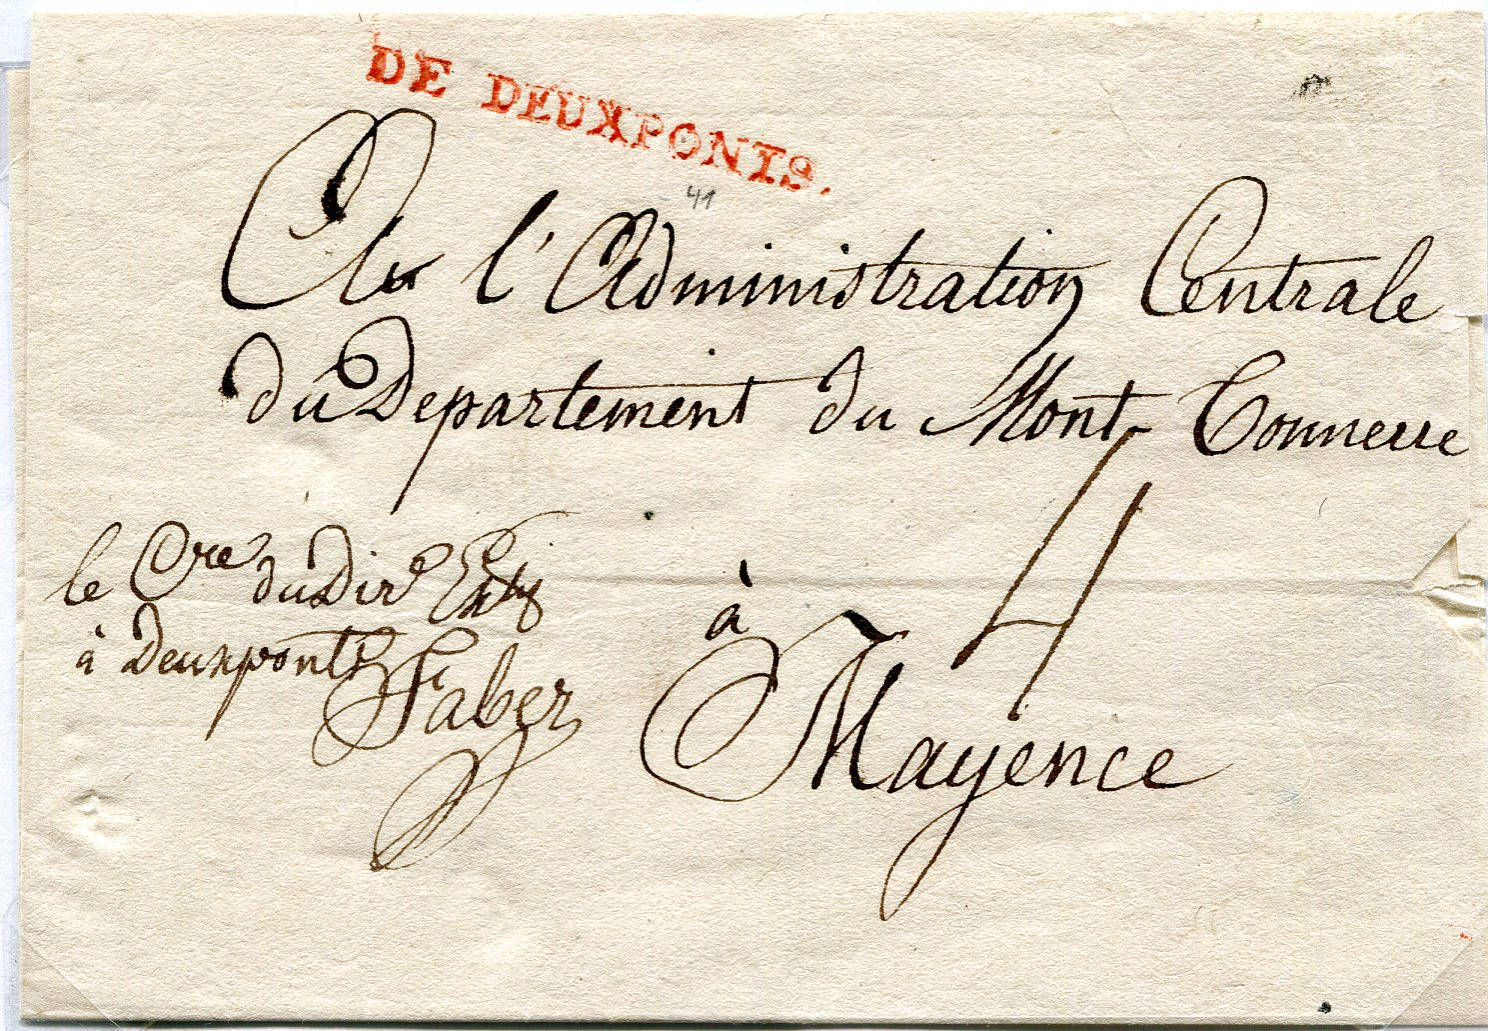 DE DEUXPONTS.
41
A l'Administration Centrale
du Departement du Mont-Tonnerre
4
le Cre du Dire Extif
à Deuxponts
Faber
à
Mayence